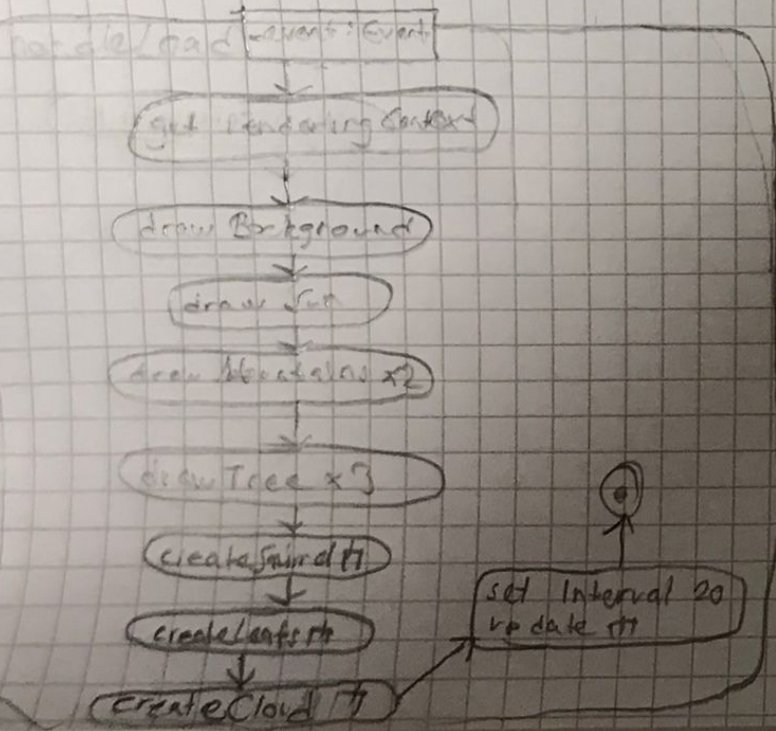 handleLoad
_event: Event
get rendering Context
draw Background
draw Sun
draw Mountains x2
draw Tree x 3
create
createLeafs
createCloud
set Interval 20
update